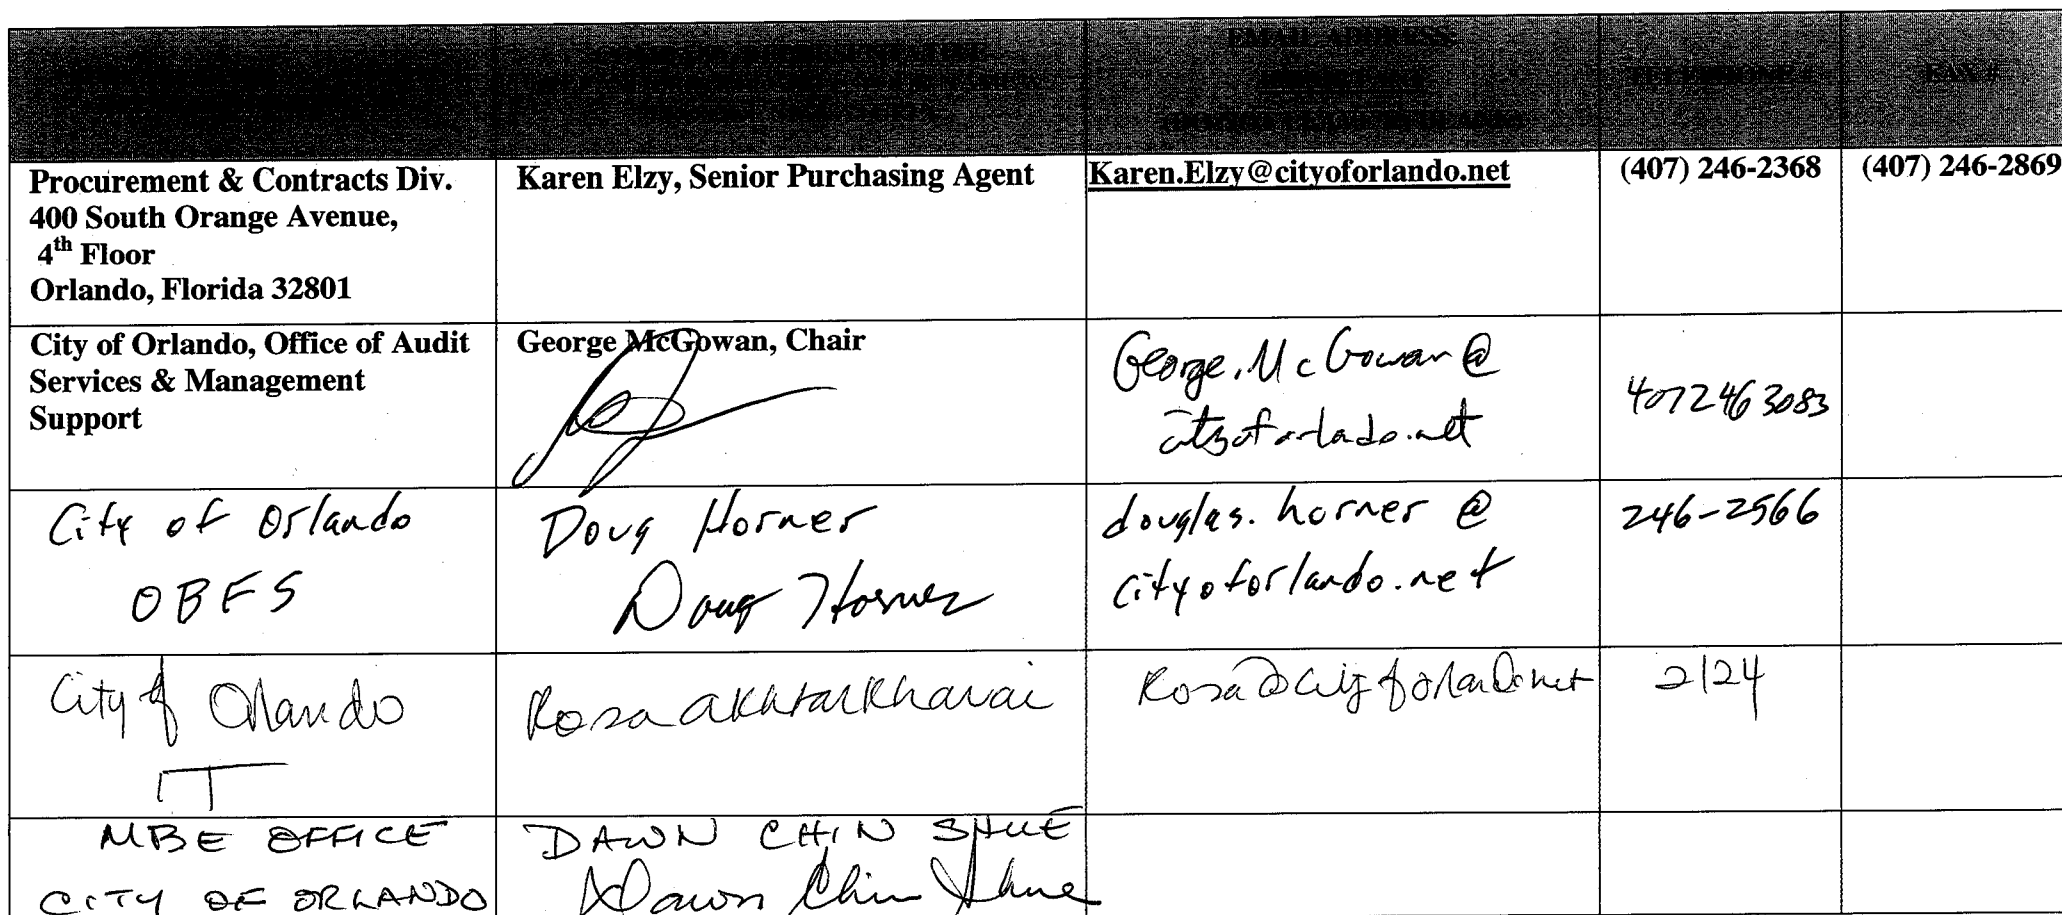 EMAIL ADDRESS
TELEPHONE #
FAX #
Procurement & Contracts Div.
400 South Orange Avenue,
4th Floor
Orlando, Florida 32801
Karen Elzy, Senior Purchasing Agent
Karen.Elzy@cityoforlando.net
(407) 246-2368
(407) 246-2869
City of Orlando, Office of Audit
Services & Management
Support
George McGowan, Chair
George.McGowan@
cityoforlando.net
4072463083
City of Orlando
OBFS
Doug Horner
Doug Horner
douglas.horner@
cityoforlando.net
246-2566
City of Orlando
IT
Rosa akhtarkhavai
Rosa@cityoforlando.net
2124
MBE OFFICE
CITY OF ORLANDO
DAWN CHIN SHUE
Dawn Chin Shue